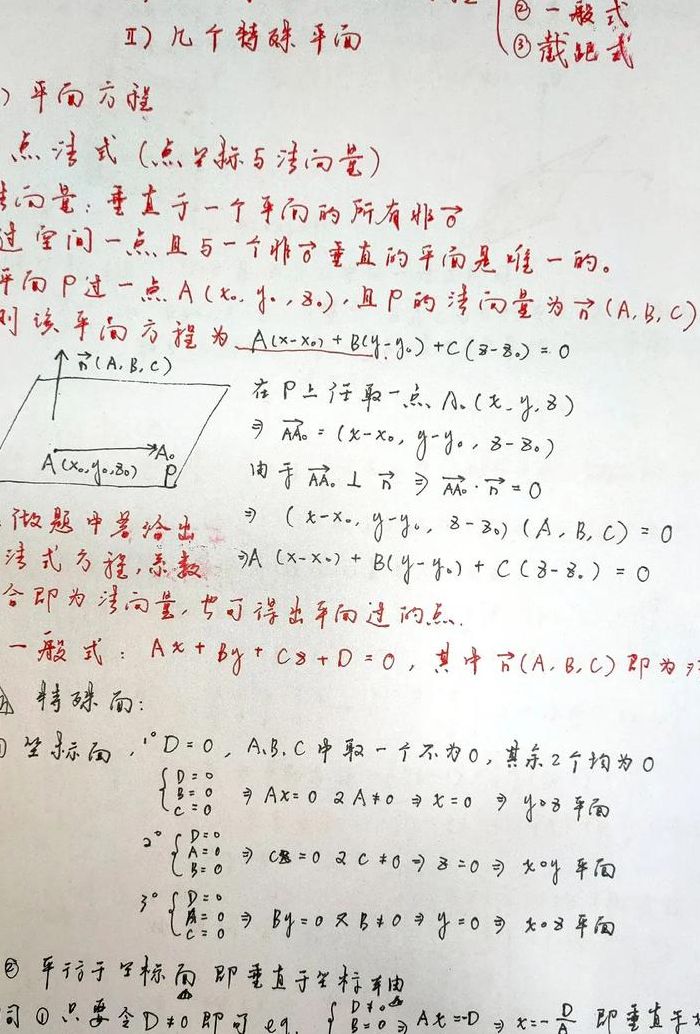 ② 一般式
II) 几个特殊平面
③ 截距式
) 平面方程
点法式 (点坐标与法向量)
法向量: 垂直于一个平面的所有非0⃗
过空间一点且与一个非0⃗垂直的平面是唯一的。
平面P过一点A(x₀, y₀, z₀), 且P的法向量为n⃗(A, B, C)
则该平面方程为 A(x-x₀) + B(y-y₀) + C(z-z₀) = 0
n⃗(A, B, C)
在P上任取一点A₀(x, y, z)
⇒ AA₀⃗ = (x-x₀, y-y₀, z-z₀)
A(x₀, y₀, z₀) A₀ P
由于 AA₀⃗ ⊥ n⃗ ⇒ AA₀⃗ · n⃗ = 0
做题中若给出
⇒ (x-x₀, y-y₀, z-z₀) (A, B, C) = 0
法式方程, 系数
⇒ A(x-x₀) + B(y-y₀) + C(z-z₀) = 0
合即为法向量, 也可得出平面过的点.
一般式: Ax + By + Cz + D = 0, 其中n⃗(A, B, C)即为
特殊面:
① 坐标面, 1° D=0, A.B.C中取一个不为0, 其余2个均为0
{ D=0 B=0 C=0 ⇒ Ax=0 又A≠0 ⇒ x=0 ⇒ yoz平面
2° { D=0 A=0 B=0 ⇒ Cz=0 又C≠0 ⇒ z=0 ⇒ xoy平面
3° { D=0 A=0 C=0 ⇒ By=0 又B≠0 ⇒ y=0 ⇒ xoz平面
② 平行于坐标面 即垂直于坐标轴
同① 只要令D≠0即可 eg. { D≠0 B=0 ⇒ Ax=-D ⇒ x=-D/A 即垂直于